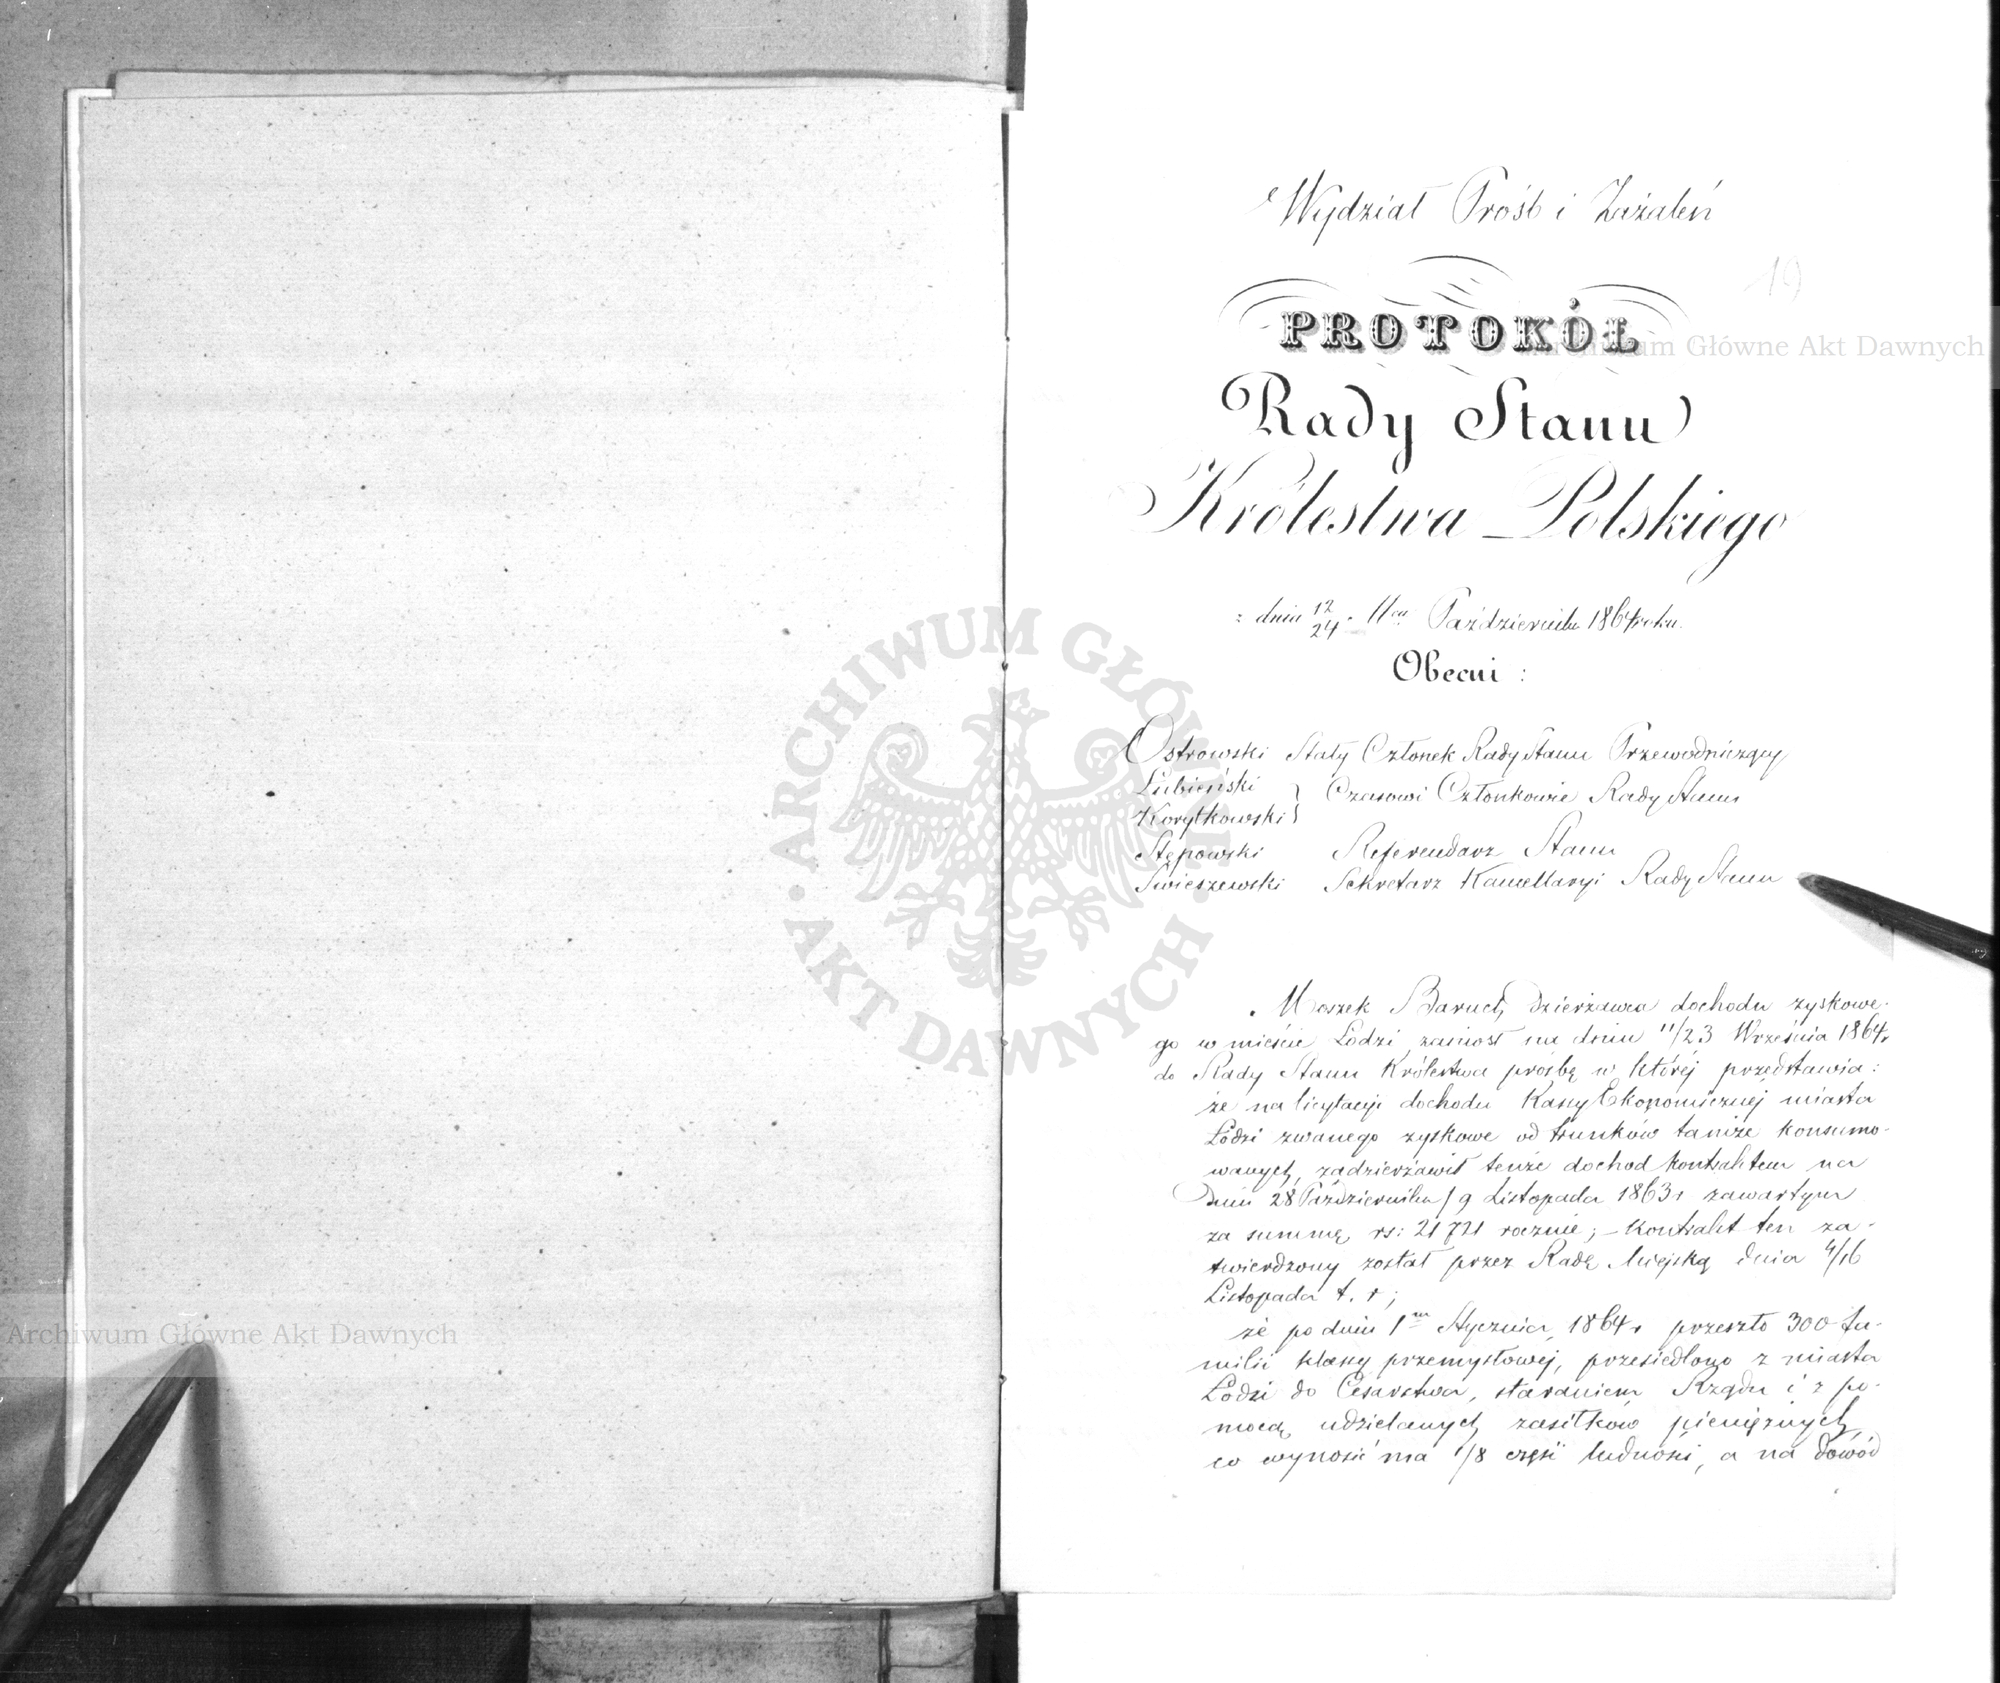 Wydział Próśb i Zażaleń
19
PROTOKÓŁ
Rady Stanu
Królestwa Polskiego
z dnia 12/24 Mca Października 1864 roku.
Obecni:
Ostrowski Stały Członek Rady Stanu Przewodniczący
Łubieński
Korytkowski } Czasowi Członkowie Rady Stanu
Stępowski Referendarz Stanu
Świeszewski Sekretarz Kancellaryi Rady Stanu
Moszek Baruch, Dzierżawca dochodu zyskowe-
go w mieście Łodzi zaniosł na dniu 11/23 Września 1864 r
do Rady Stanu Królestwa prośbę w któréj przedstawia:
że na licytacyi dochodu Kassy Ekonomicznéj miasta
Łodzi zwanego zyskowe od trunków tamże konsumo-
wanych, zadzierżawił tenże dochod kontraktem na
dniu 28 Października / 9 Listopada 1863 r zawartym
za summę rs: 21721 rocznie; – Kontrakt ten za-
twierdzony został przez Radę Miejską dnia 4/16
Listopada t. r;
że po dniu 1m Stycznia 1864 r przeszło 300 fa-
milii klassy przemysłowéj, przesiedlono z miasta
Łodzi do Cesarstwa, staraniem Rządu i z po-
mocą udzielanych zasiłków pieniężnych
co wynosić ma 1/8 część ludności, a na dowód
Archiwum Główne Akt Dawnych
Archiwum Główne Akt Dawnych
ARCHIWUM GŁÓWNE AKT DAWNYCH